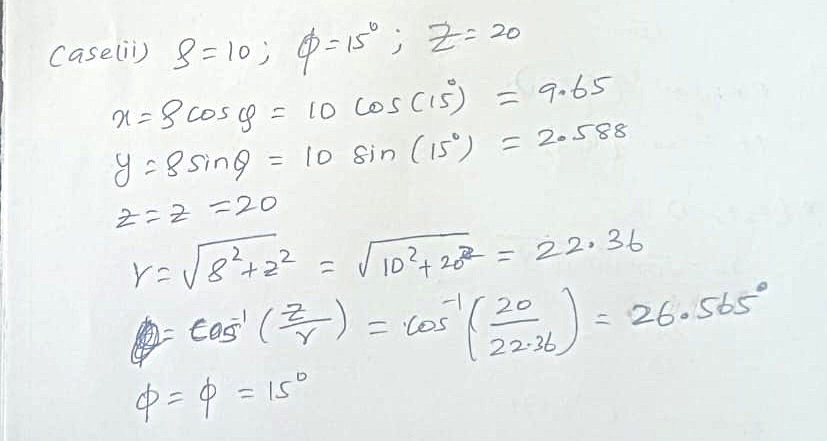 Case(ii) ρ=10; φ=15°; z=20
x=ρcosφ = 10 cos(15°) = 9.65
y=ρsinφ = 10 sin(15°) = 2.588
z=z=20
r=√ρ²+z² = √10²+20² = 22.36
= cos⁻¹(z/r) = cos⁻¹(20/22.36) = 26.565°
φ=φ=15°